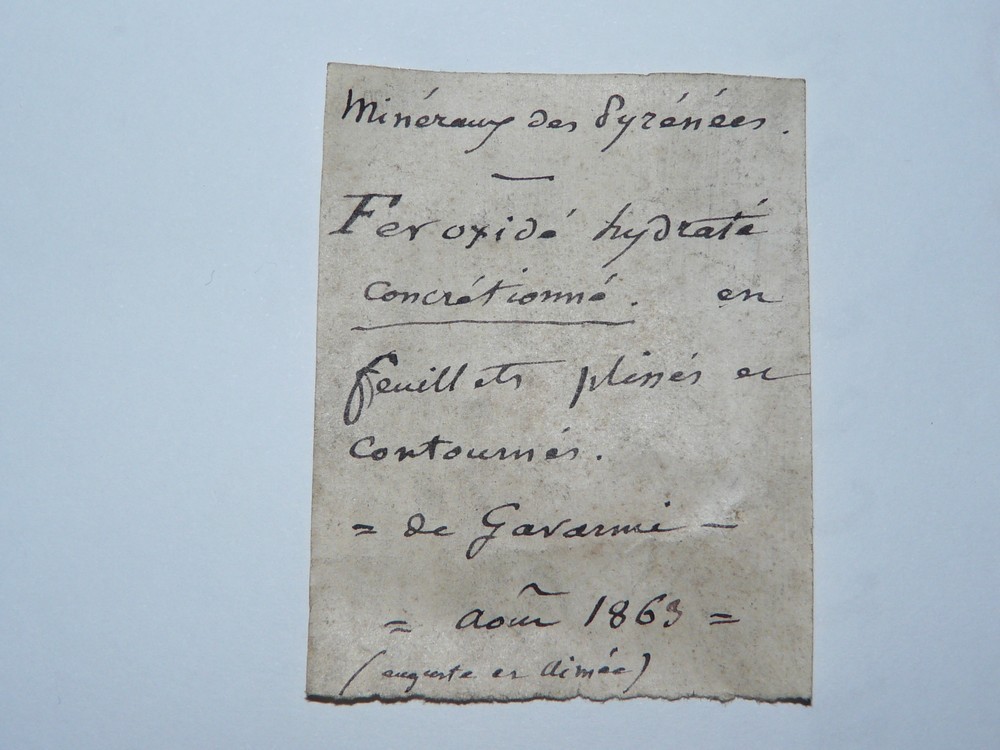 Minéraux des Pyrénées.
Fer oxidé hydraté
concrétionné. en
feuillets plissés et
contournés.
= de Gavarnie -
= août 1863 =
(auguste et Aimée)